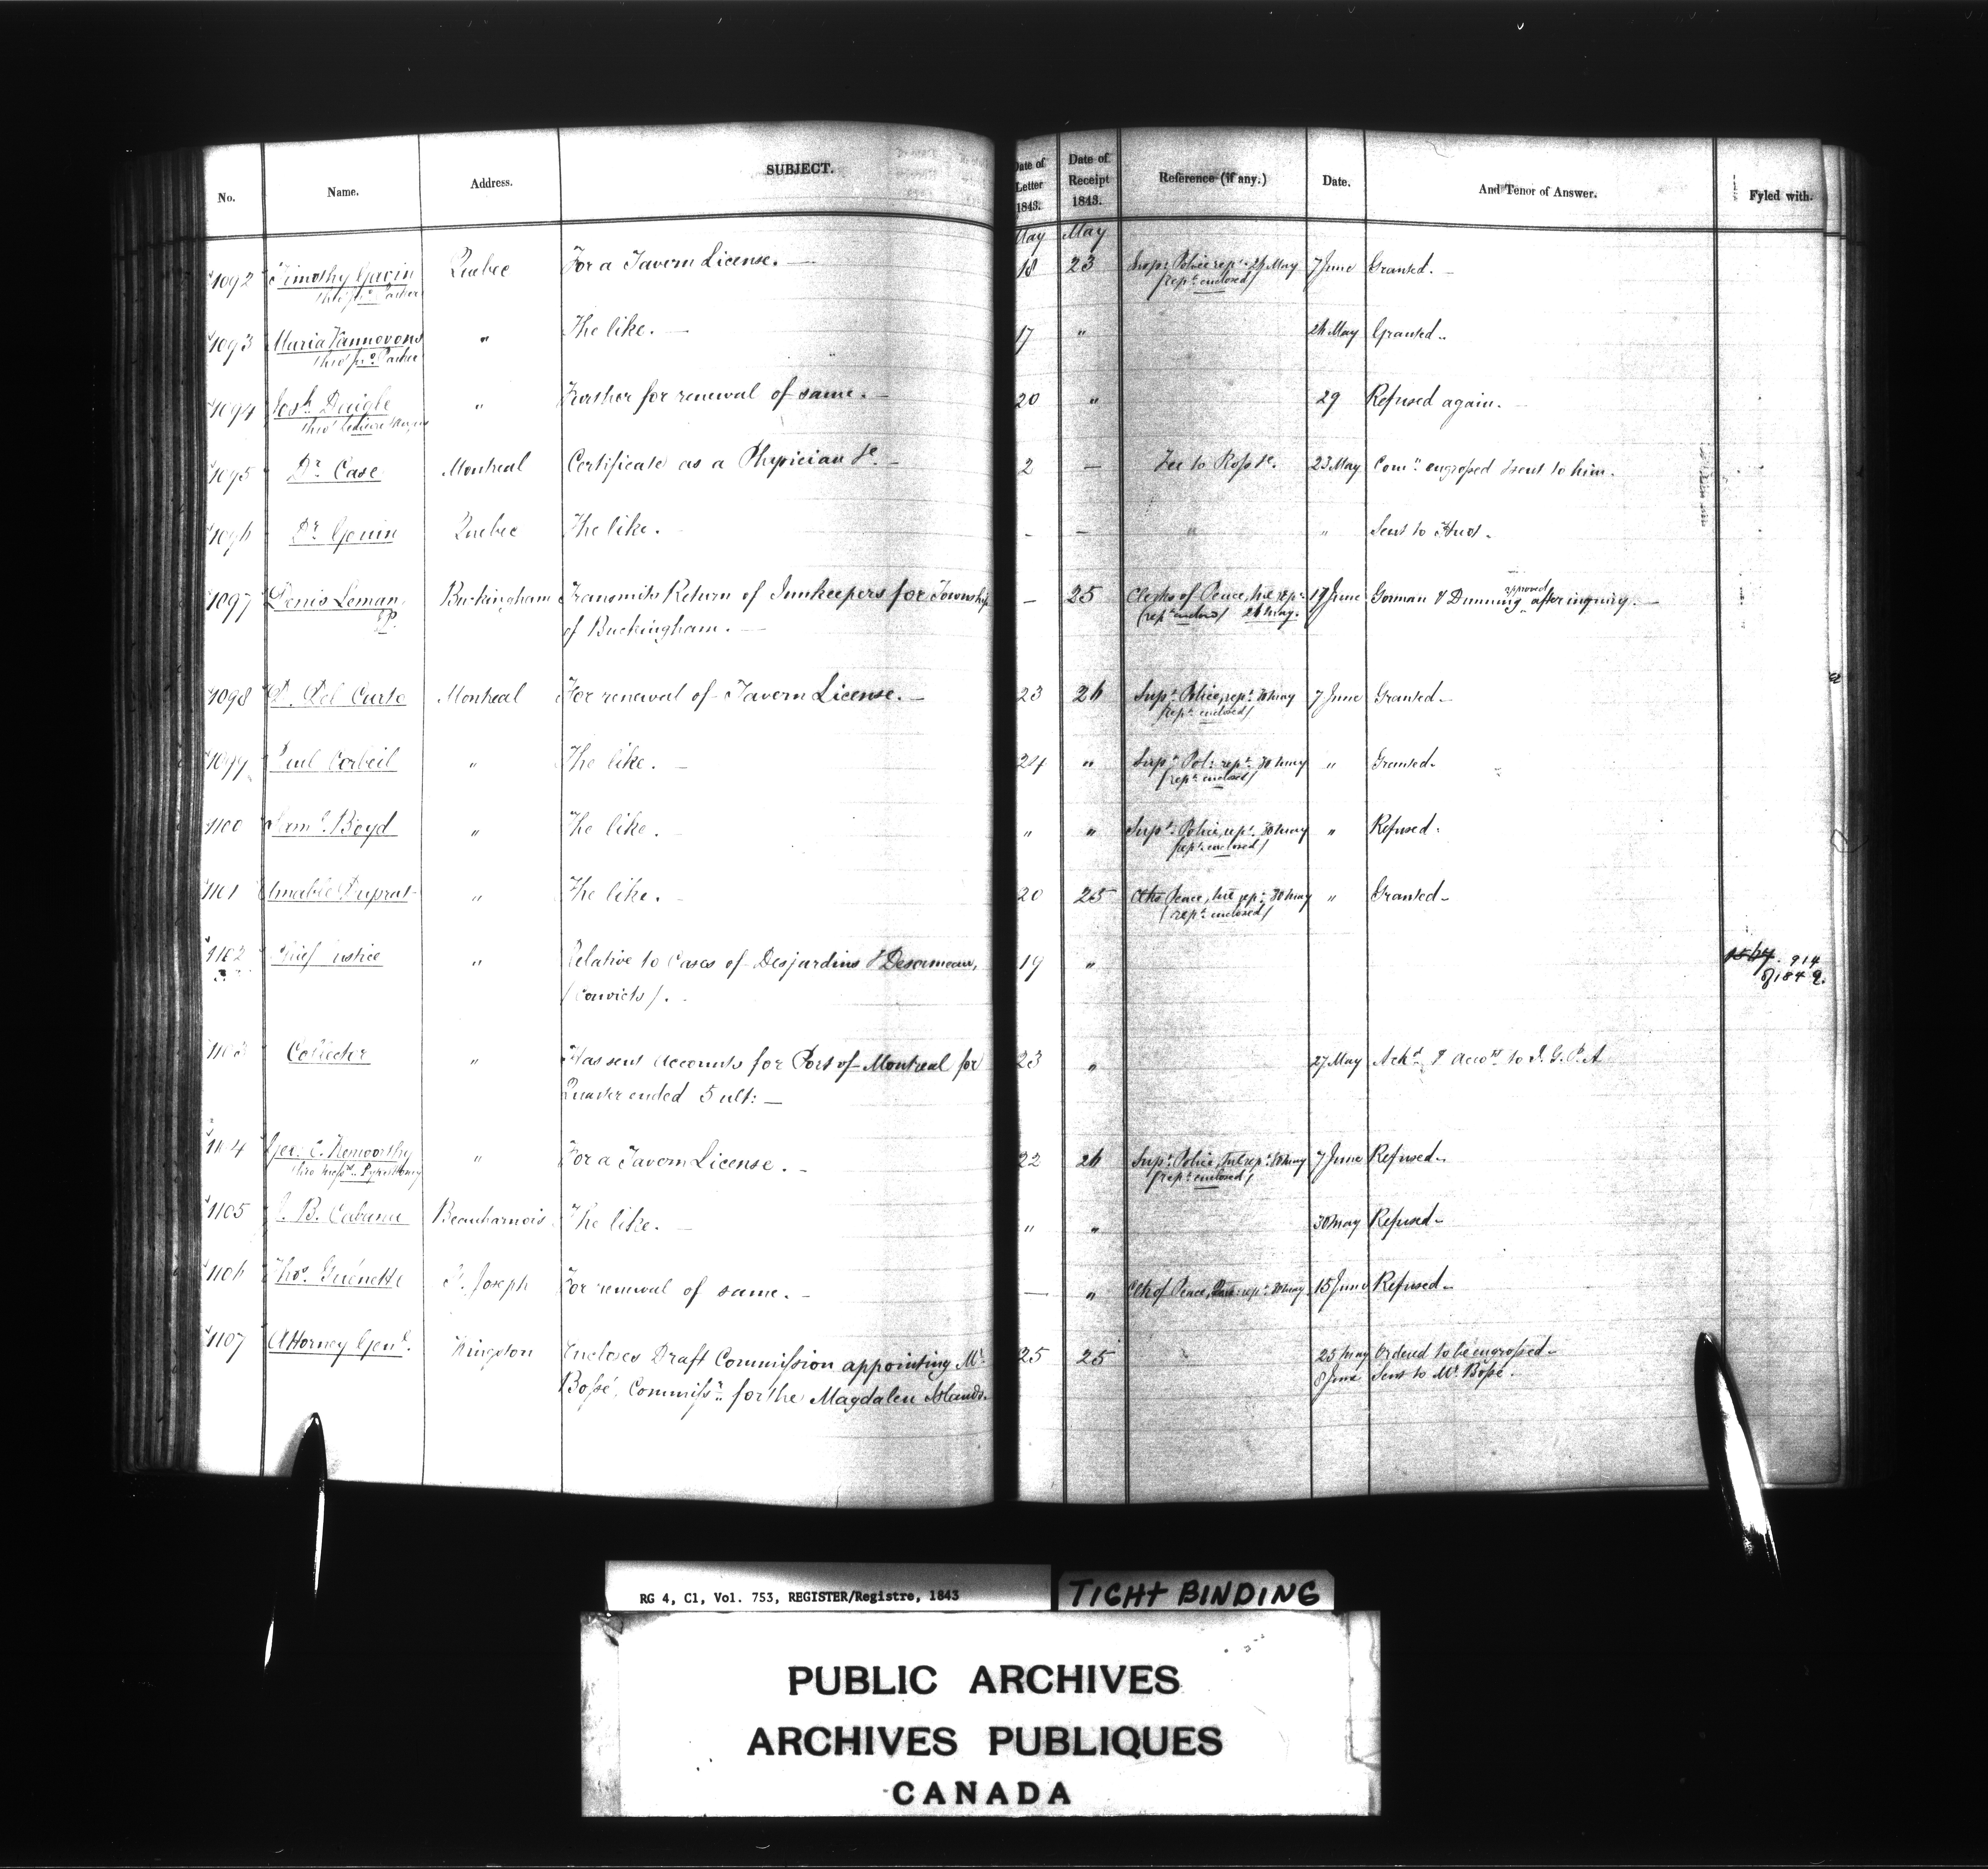 No. Name. Address. SUBJECT. Date of Letter 1843. Date of Receipt 1843. Reference (if any.) Date. And Tenor of Answer. Fyled with.
May May
1092 Timothy Gavin Quebec For a Tavern License. — 18 23 Insp: Police rept 24 May 7 June Granted. —
(rept enclosed)
1093 Maria Vannovous " The like. — 17 " 24 May Granted.
1094 Josh Daigle " Further for renewal of same. — 20 " 29 Refused again. —
1095 Dr Case Montreal Certificate as a Physician &c. — 2 — Fee to Ross &c. 23 May Comn engrossed & sent to him.
1096 Dr Gouin Quebec The like. — - — " " Sent to Huot.
1097 Denis Leman Buckingham Transmits Return of Innkeepers for Township — 25 Clerks of Peace, rept 17 June Gorman & Dunning approved after inquiry. —
JP. of Buckingham. — (rept enclosed) 26 May.
1098 D. Del Curto Montreal For renewal of Tavern License. — 23 26 Supt Police, rept 30 May 7 June Granted.
(rept enclosed)
1099 Paul Corbeil " The like. — 24 " Supt Pol: rept 30 May " Granted.
(rept enclosed)
1100 Saml Boyd " The like. " " Supt Police, rept 30 May " Refused.
(rept enclosed)
1101 Amable Duprat " The like. 20 25 Clks Peace, rept 30 May " Granted.
(rept enclosed)
1102 Chief Justice " Relative to Cases of Desjardins & Desormeau, 19 " 914
(convicts). of 1842.
1103 Collector " Has sent Accounts for Port of Montreal for 23 " 27 May Ackd & Accots to I. G. P. A
Quarter ended 5 ult: —
1104 Geo. C. Kenworthy " For a Tavern License. — 22 26 Supt Police, rept 30 May 7 June Refused.
(rept enclosed)
1105 J. B. Cabana Beauharnois The like. — " " 30 May Refused.
1106 Thos. Guénette St. Joseph For renewal of same. — — " Clk of Peace, rept 30 May 15 June Refused.
1107 Attorney Genl. Kingston Encloses Draft Commission appointing Mr 25 25 25 May Ordered to be engrossed.
Bossé, Commissr for the Magdalen Islands. 8 June Sent to Mr Bossé.
RG 4, C1, Vol. 753, REGISTER/Registre, 1843
TIGHT BINDING
PUBLIC ARCHIVES
ARCHIVES PUBLIQUES
CANADA